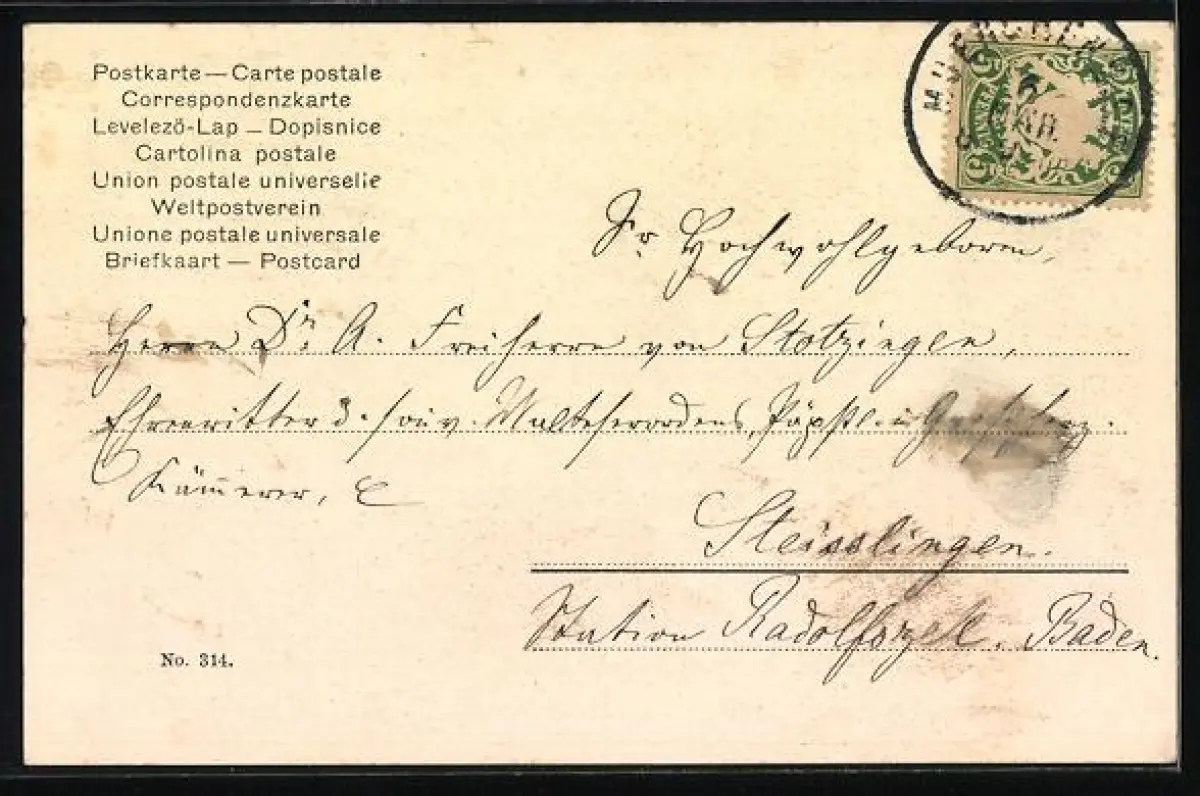 Postkarte — Carte postale
Correspondenzkarte
Levelező-Lap — Dopisnice
Cartolina postale
Union postale universelle
Weltpostverein
Unione postale universale
Briefkaart — Postcard
MUENCHEN
5 5
Sr. Hochwohlgeboren,
Herrn Dr. A. Freiherrn von Stotzingen,
Ehrenritter d. souv. Malteserordens, Päpstl. u. Großherz.
Kämerer, &
Steisslingen.
Station Radolfszell. Baden.
No. 314.